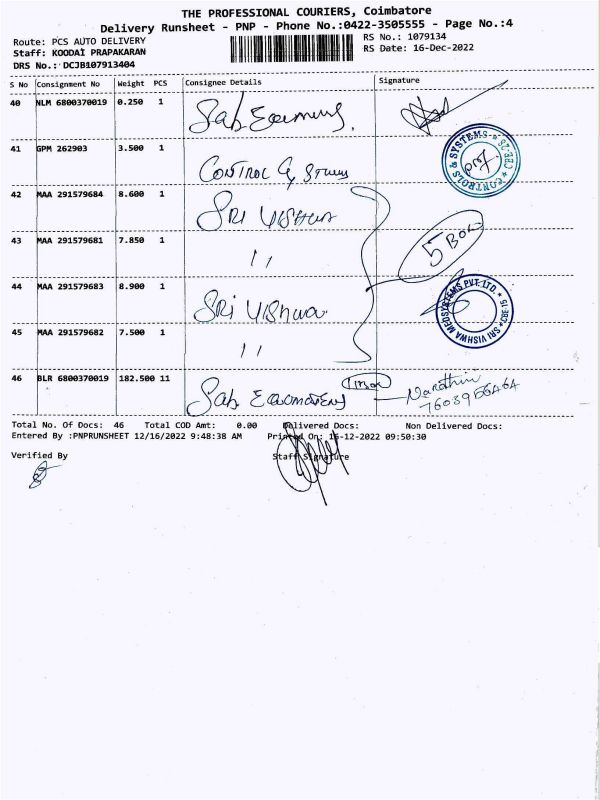 THE PROFESSIONAL COURIERS, Coimbatore
Delivery Runsheet - PNP - Phone No.:0422-3505555 - Page No.:4
Route: PCS AUTO DELIVERY
RS No.: 1079134
Staff: KOODAI PRAPAKARAN
RS Date: 16-Dec-2022
DRS No.: DCJB107913404
S No Consignment No Weight PCS Consignee Details Signature
40 NLM 6800370019 0.250 1 Sab
41 GPM 262903 3.500 1 CONTROL &
CONTROLS & SYSTEMS ★ CBE-25 ★
42 MAA 291579684 8.600 1 SRI VISHWA
43 MAA 291579681 7.850 1 ''
5 BOX
44 MAA 291579683 8.900 1 SRI VISHWA
SRI VISHWA MEDSYSTEMS PVT. LTD. ★ CBE-15 ★
45 MAA 291579682 7.500 1 ''
46 BLR 6800370019 182.500 11 Sab
11Box
Total No. Of Docs: 46 Total COD Amt: 0.00 Delivered Docs: Non Delivered Docs:
Entered By :PNPRUNSHEET 12/16/2022 9:48:38 AM Printed On: 16-12-2022 09:50:30
Verified By Staff Signature